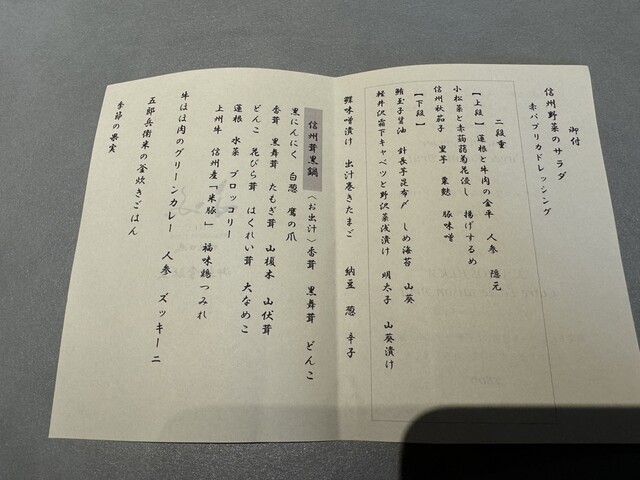 御付
信州野菜のサラダ
赤パプリカドレッシング
二段重
【上段】蓮根と牛肉の金平　人参　隠元
小松菜と赤蒟蒻菊花浸し　揚げするめ
信州秋茄子　里芋　粟麩　豚味噌
【下段】
鮪玉子醤油　針長芋昆布〆　しめ海苔　山葵
軽井沢霜下キャベツと野沢菜浅漬け　明太子　山葵漬け
鰈味噌漬け　出汁巻きたまご　納豆　葱　辛子
信州茸黒鍋　〈お出汁〉香茸　黒舞茸　どんこ
黒にんにく　白葱　鷹の爪
香茸　黒舞茸　たもぎ茸　山榎木　山伏茸
どんこ　花びら茸　はくれい茸　大なめこ
蓮根　水菜　ブロッコリー
上州牛　信州産「米豚」　福味鶏つみれ
牛ほほ肉のグリーンカレー　人参　ズッキーニ
五郎兵衛米の釜炊きごはん
季節の果実